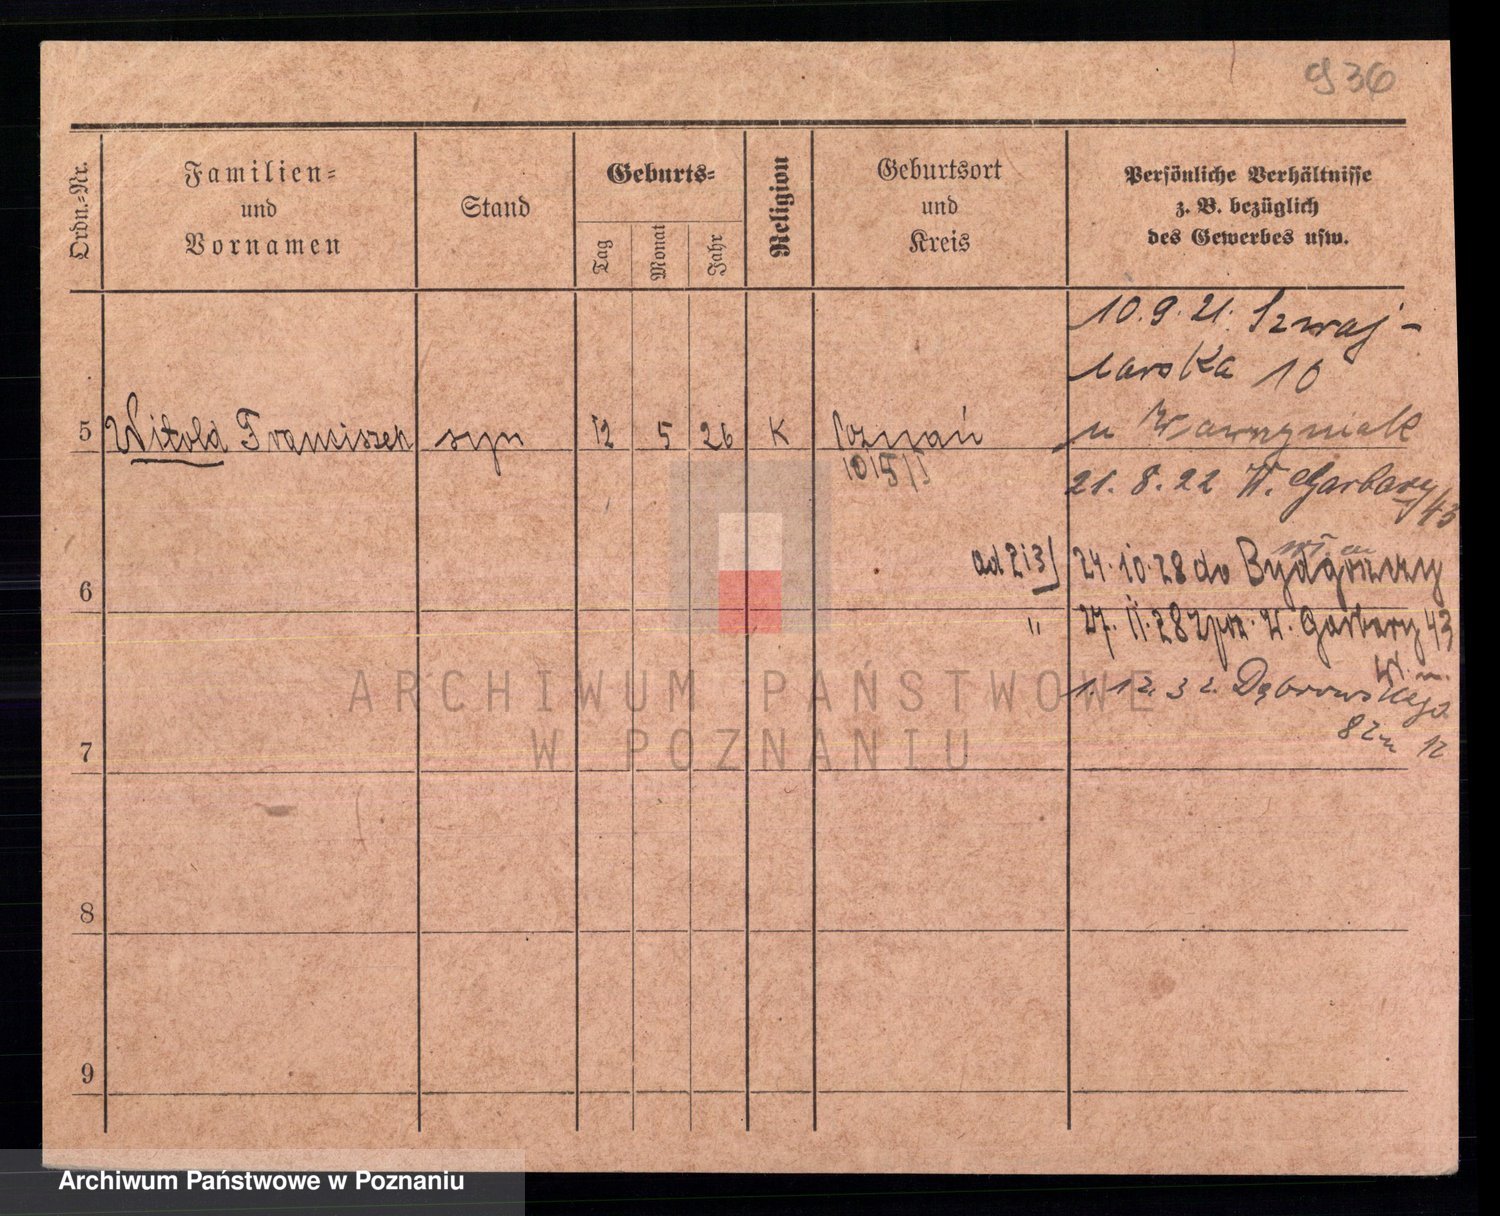 936
Ordn.-Nr.
Familien-
und
Vornamen
Stand
Geburts-
Tag
Monat
Jahr
Religion
Geburtsort
und
Kreis
Persönliche Verhältnisse
z. B. bezüglich
des Gewerbes usw.
10.9.21. Szwaj-
carska 10
u Wawrzyniak
5 Witold Franciszek syn 12 5 26 K Poznań
1015/I
21.8.22 W. Garbary 43
ad 2i3) 24.10.28 do Bydgoszczy
6
" 27.11.28 z por. W. Garbary 43
1.12.32. Dąbrowskiego
82 m 12
7
8
9
ARCHIWUM PAŃSTWOWE
W POZNANIU
Archiwum Państwowe w Poznaniu